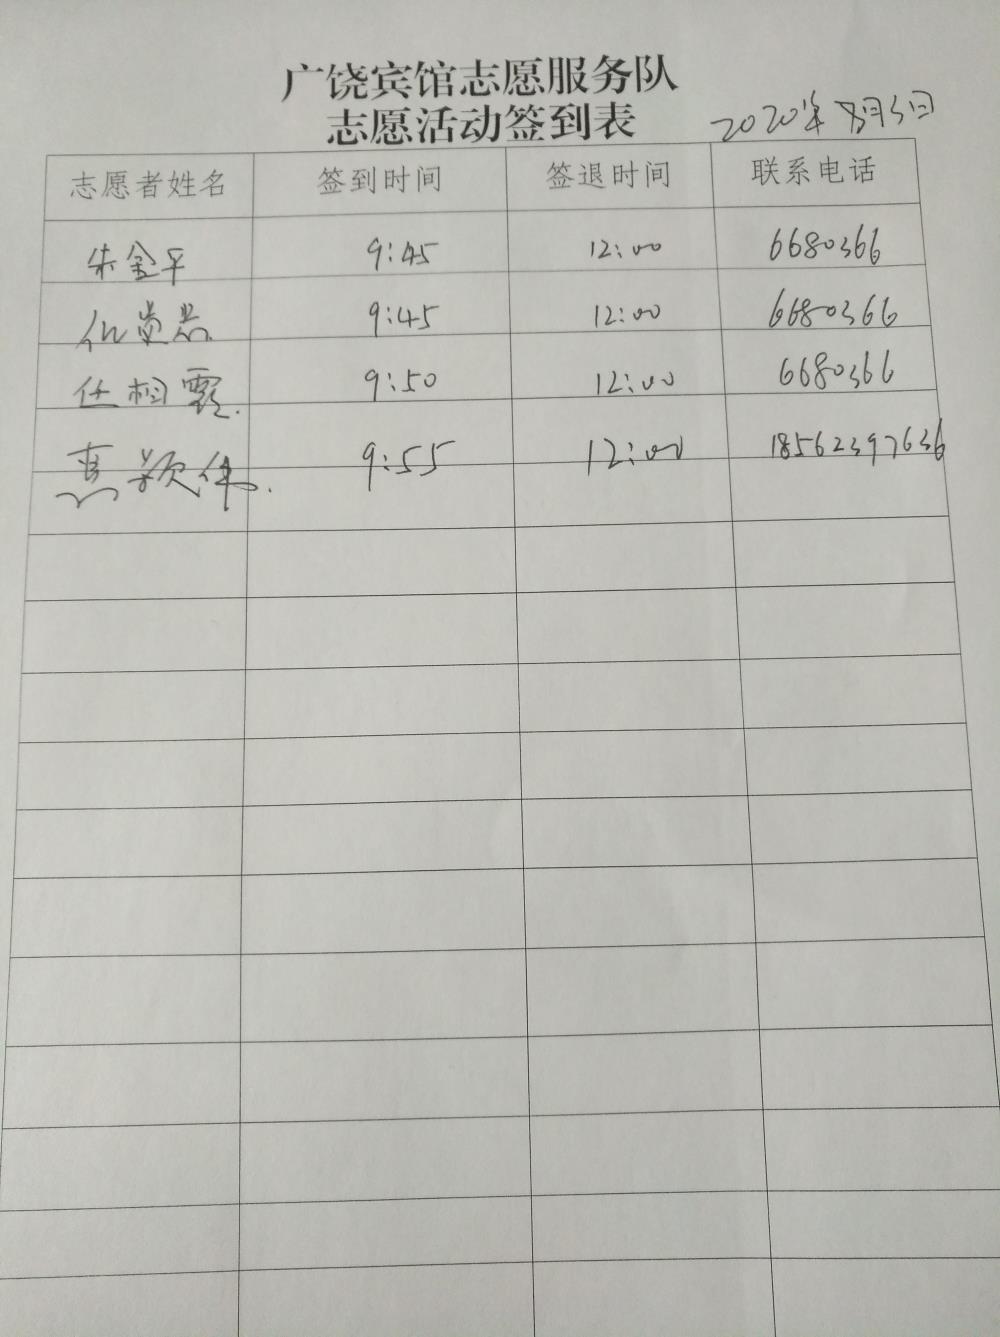 广饶宾馆志愿服务队
志愿活动签到表
2020年8月5日
志愿者姓名 签到时间 签退时间 联系电话
朱金平 9:45 12:00 6680366
9:45 12:00 6680366
任相霞 9:50 12:00 6680366
9:55 12:00 18562397636